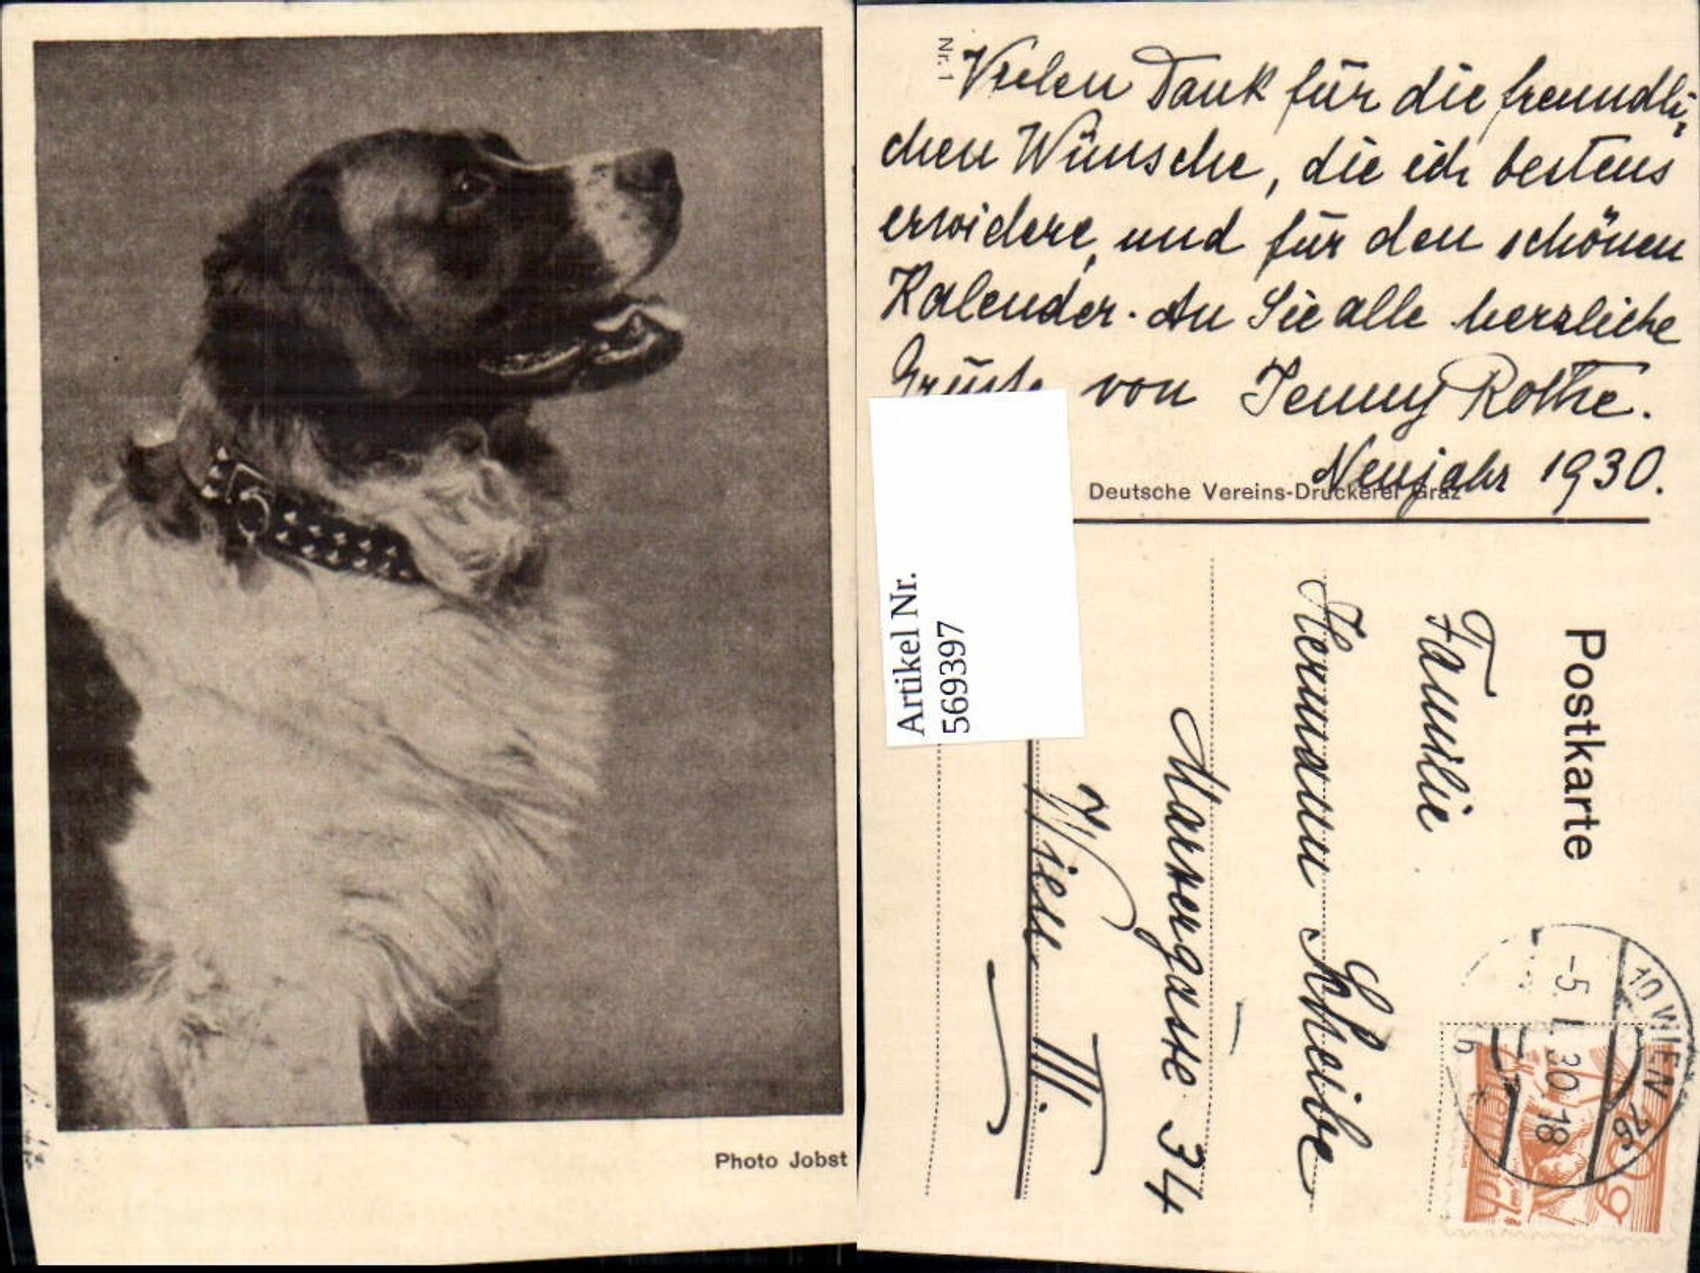 Photo Jobst
Nr. 1
Vielen Dank für die freundli-
chen Wünsche, die ich bestens
erwidere, und für den schönen
Kalender. An Sie alle herzliche
Grüsse von Jenny Rothe.
Neujahr 1930.
Deutsche Vereins-Druckerei Graz
Artikel Nr.
569397
Postkarte
Familie
Hermann Scheibe
Marxergasse 34
Wien III.
10 WIEN 76
-5. I. 30 18